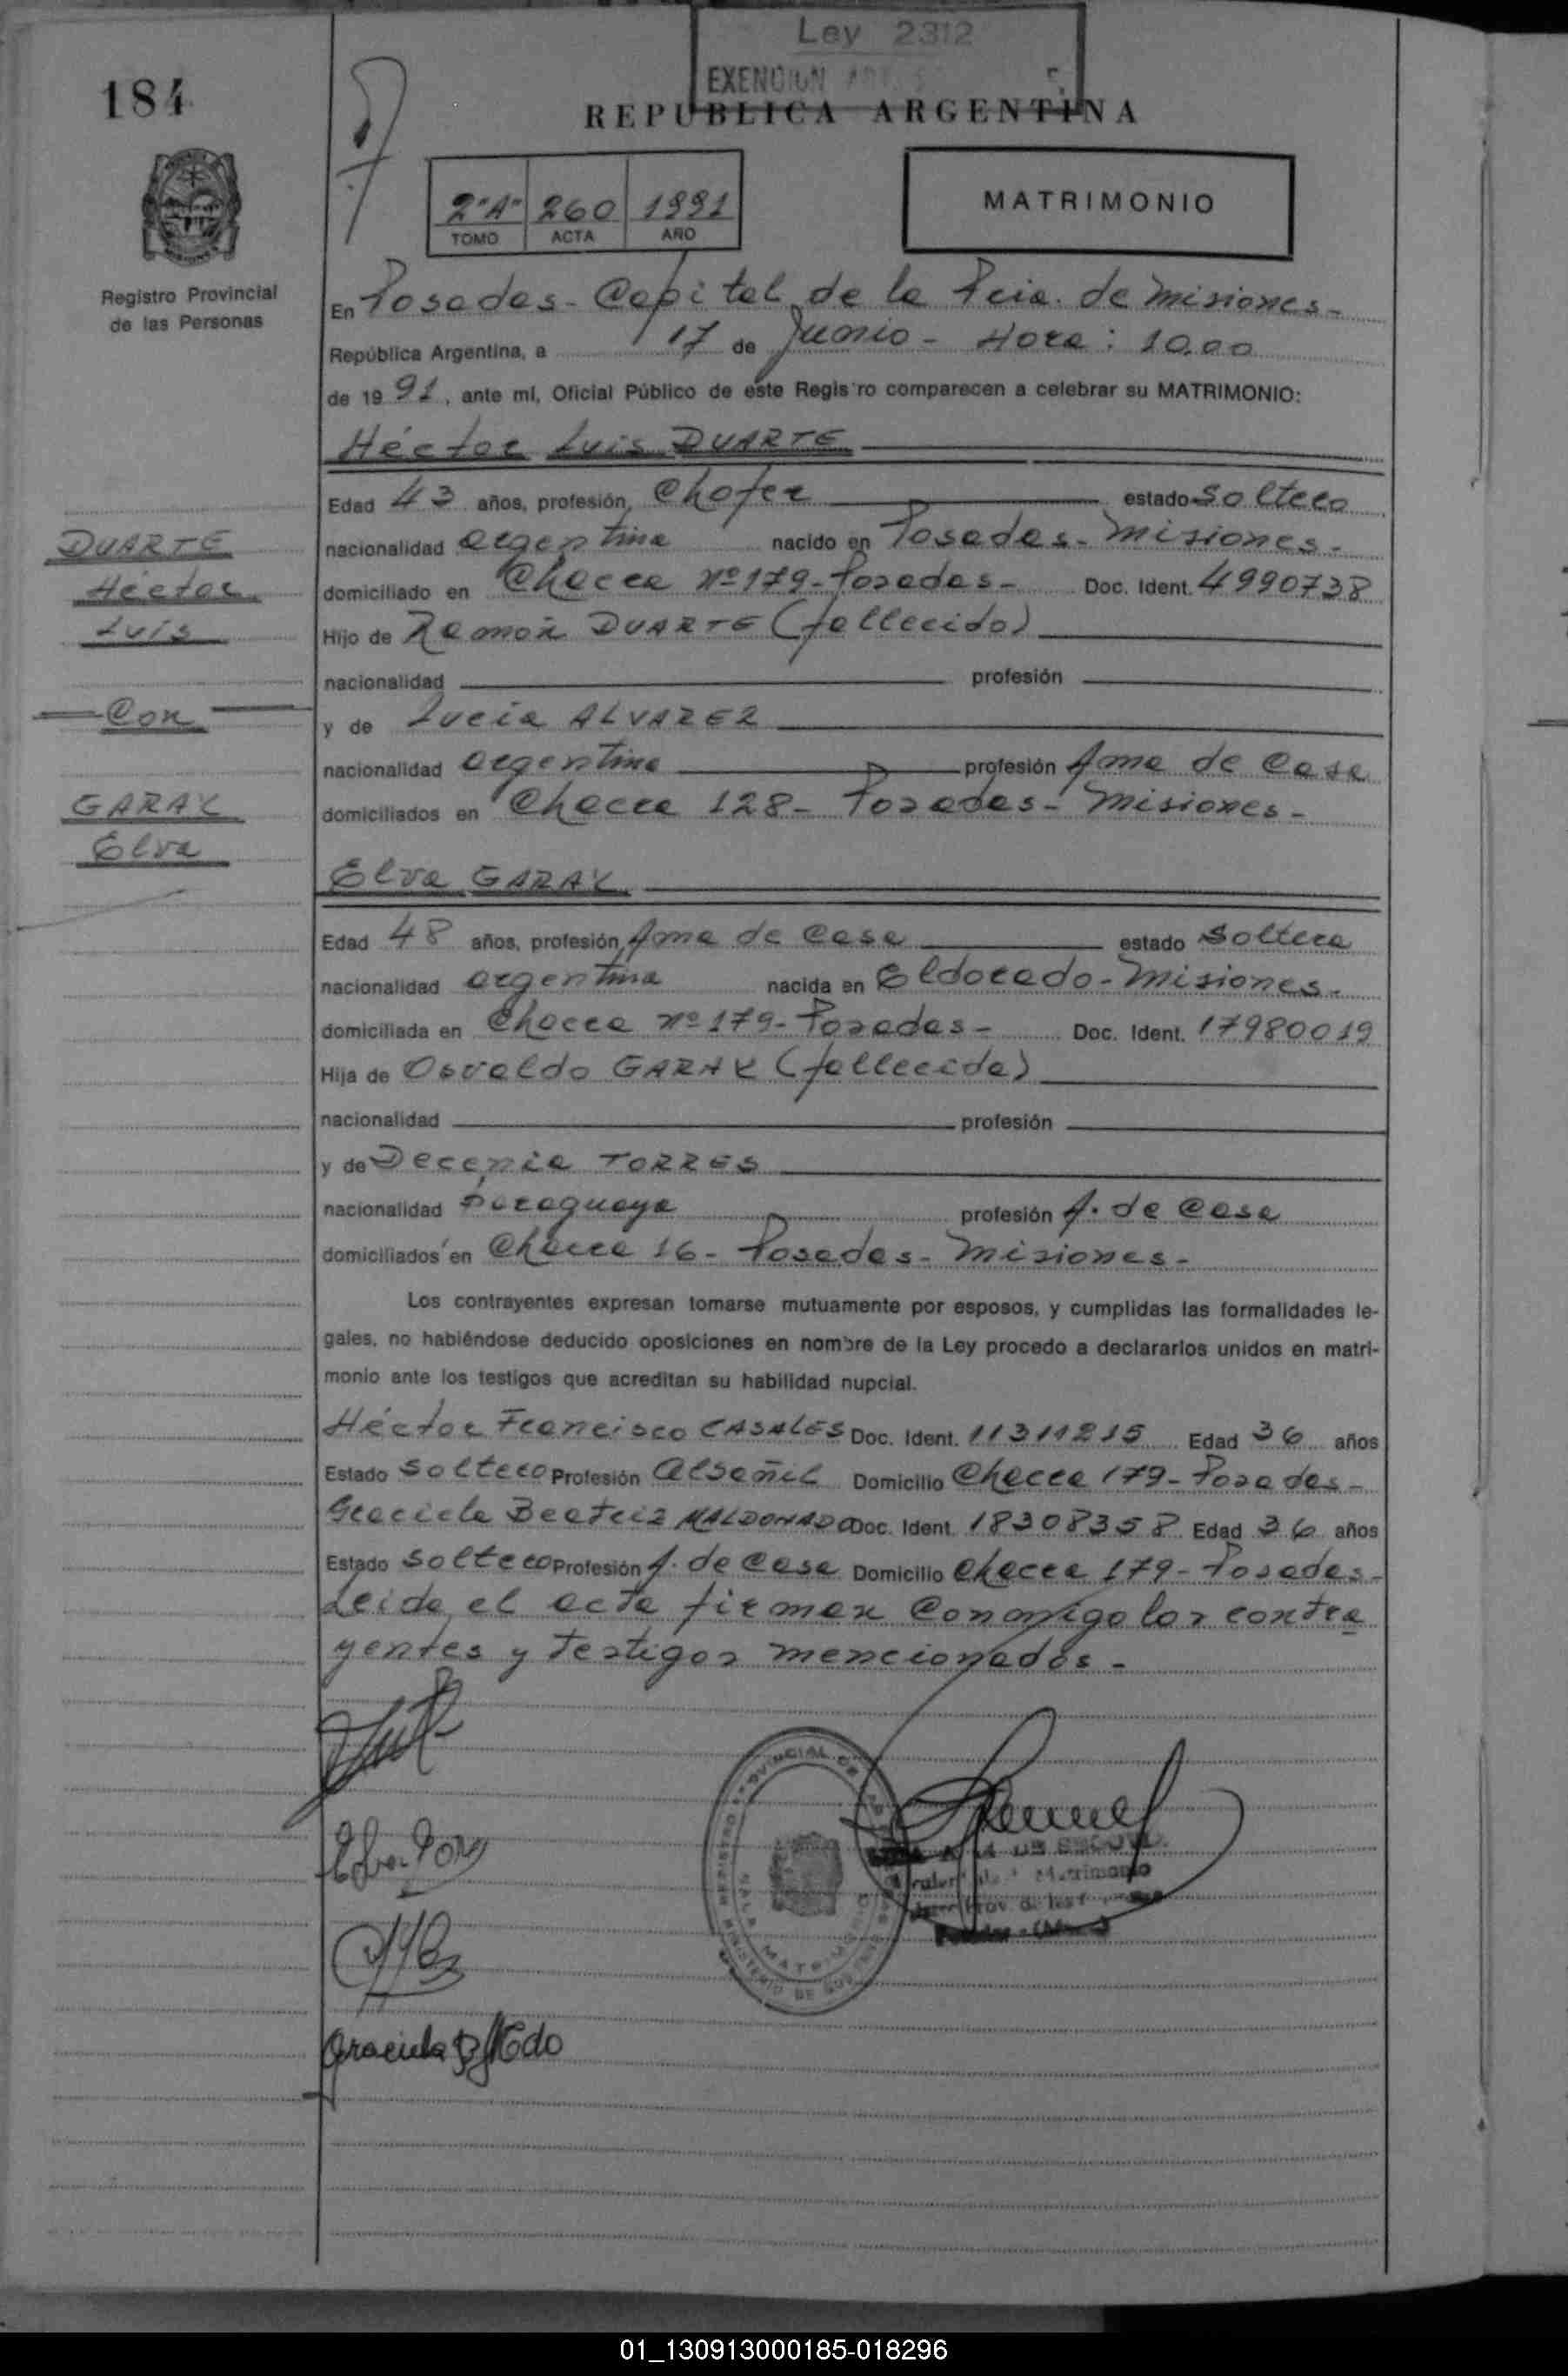 Ley 2312
EXENCION
184
REPUBLICA ARGENTINA
2"A" 260 1991
TOMO ACTA AÑO
MATRIMONIO
Registro Provincial
de las Personas
En Posadas - Capital de la Pcia. de Misiones -
República Argentina, a 17 de Junio - Hora: 10.00
de 19 91, ante mi, Oficial Público de este Registro comparecen a celebrar su MATRIMONIO:
Héctor Luis DUARTE
Edad 43 años, profesión, Chofer estado Soltero
nacionalidad argentina nacido en Posadas - Misiones -
domiciliado en Chacra Nº 179 - Posadas - Doc. Ident. 4990738
Hijo de Ramón DUARTE (fallecido)
nacionalidad profesión
y de Lucia ALVAREZ
nacionalidad argentina profesión Ama de Casa
domiciliados en Chacra 128 - Posadas - Misiones -
DUARTE
Héctor
Luis
Con
GARAY
Elva
Elva GARAY
Edad 48 años, profesión, Ama de Casa estado Soltera
nacionalidad argentina nacida en Eldorado - Misiones -
domiciliada en Chacra Nº 179 - Posadas - Doc. Ident. 17980019
Hija de Osvaldo GARAY (fallecido)
nacionalidad profesión
y de Decenia TORRES
nacionalidad Paraguaya profesión A. de Casa
domiciliados en Chacra 16 - Posadas - Misiones -
Los contrayentes expresan tomarse mutuamente por esposos, y cumplidas las formalidades le-
gales, no habiéndose deducido oposiciones en nombre de la Ley procedo a declararlos unidos en matri-
monio ante los testigos que acreditan su habilidad nupcial.
Héctor Francisco CASALES Doc. Ident. 11311215 Edad 36 años
Estado Soltero Profesión Albañil Domicilio Chacra 179 - Posadas -
Graciela Beatriz MALDONADO Doc. Ident. 18308358 Edad 36 años
Estado Soltero Profesión A. de Casa Domicilio Chacra 179 - Posadas -
Leida el acta firman Conmigo los contra
yentes y testigos mencionados -
Graciela B Mdo
01_130913000185-018296